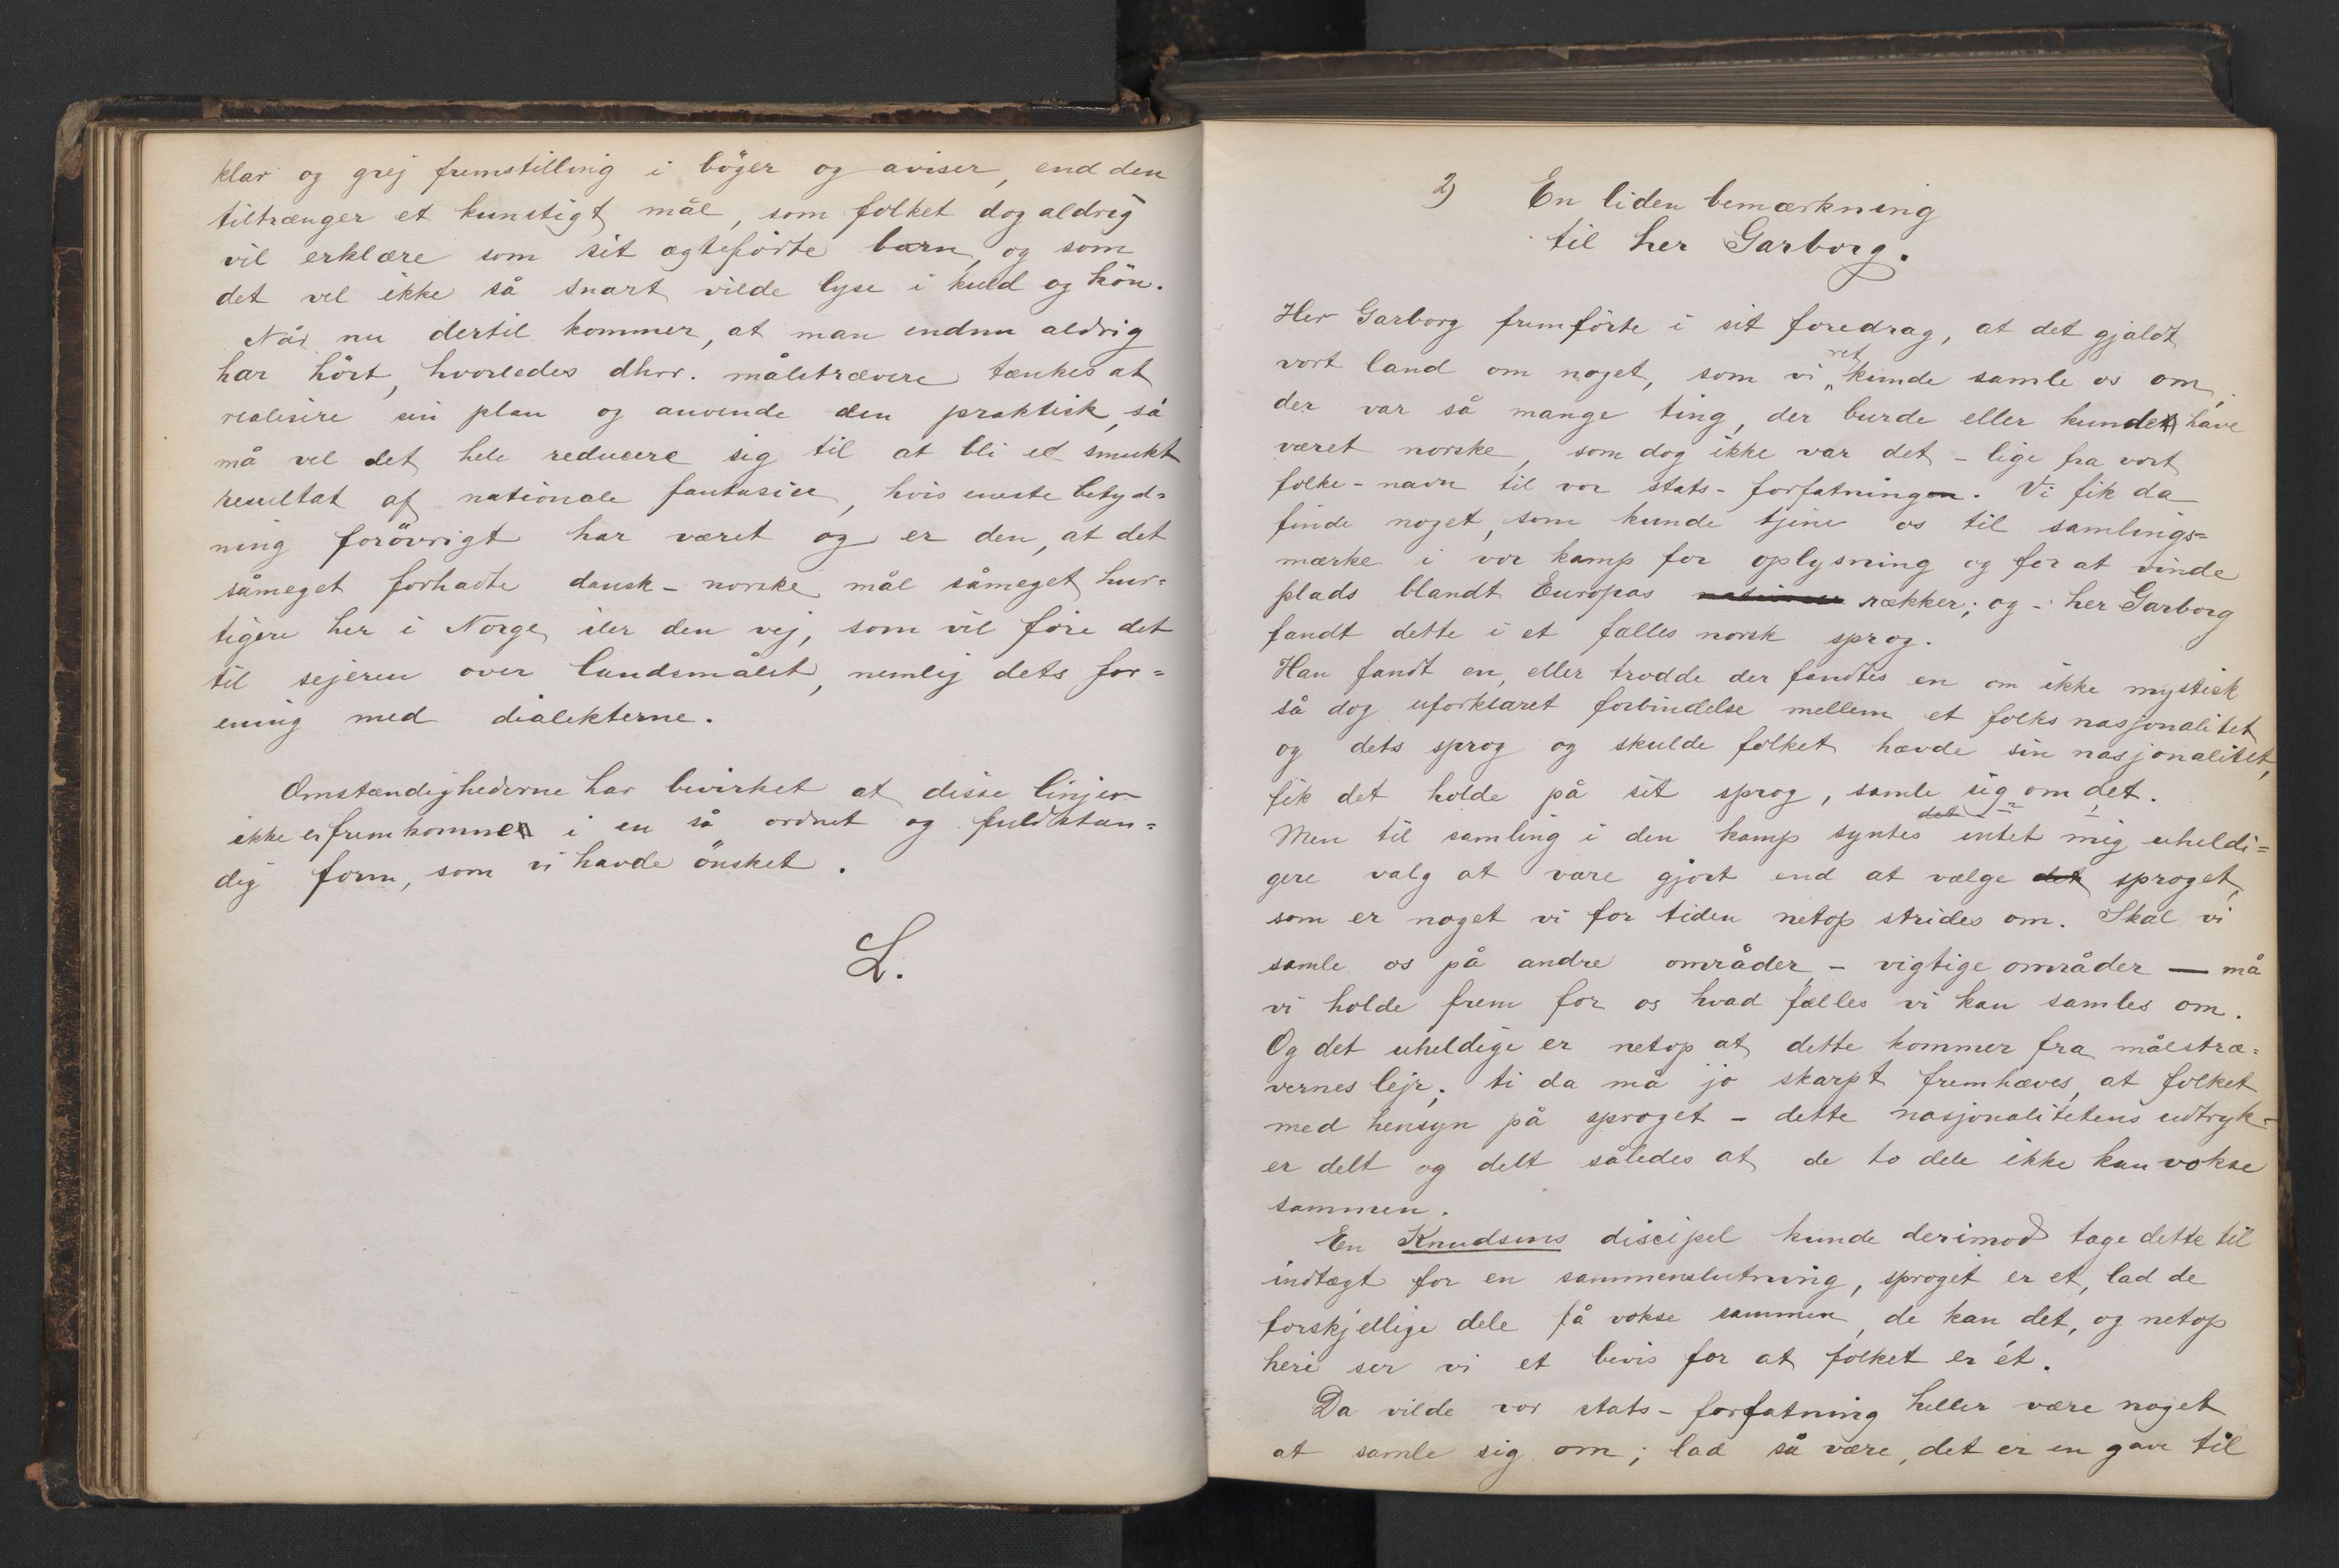 klar og grej fremstilling i böger og aviser, end den
tiltrænger et kunstigt mål, som folket dog aldrig
vil erklære som sit ægtefödte barn, og som
det vel ikke så snart vilde lyse i kuld og kön.
Når nu dertil kommer, at man endnu aldrig
har hört, hvorledes dhrr. målstrævere tænkes at
realisere sin plan og anvende den praktisk, så
må vel det hele reducere sig til at bli et smukt
resultat af nationale fantasier, hvis eneste betyd=
ning forövrigt har været og er den, at det
såmeget forhadte dansk-norske mål såmeget hur=
tigere her i Norge iler den vej, som vil före det
til sejeren over landsmålet, nemlig dets for=
ening med dialekterne.
Omstændighederne har bevirket at disse linjer
ikke er fremkomne i en så ordnet og fuldstæn=
dig form, som vi havde önsket.
L.
2) En liden bemærkning
til her Garborg.
Her Garborg fremförte i sit foredrag, at det gjaldt
vort land om noget, som vi ret kunde samle os om,
der var så mange ting, der burde eller kunde have
været norske, som dog ikke var det - lige fra vort
folke-navn til vor stats-forfatning. Vi fik da
finde noget, som kunde tjene os til samlings=
mærke i vor kamp for oplysning og for at vinde
plads blandt Europas nationer rækker; og - her Garborg
fandt dette i et fælles norsk sprog.
Han fandt en, eller trodde der fandtes en om ikke mystisk
så dog uforklaret forbindelse mellem et folks nasjonalitet
og dets sprog og skulde folket hævde sin nasjonalitet,
fik det holde på sit sprog, samle sig om det.
Men til samling i den kamp syntes det intet mig uheldi=
gere valg at være gjort end at vælge det sproget,
som er noget vi for tiden netop strides om. Skal vi
samle os på andre områder - vigtige områder — må
vi holde frem for os hvad fælles vi kan samles om.
Og det uheldige er netop at dette kommer fra målstræ=
vernes lejr; ti da må jo skarpt fremhæves, at folket
med hensyn på sproget - dette nasjonalitetens udtryk -
er delt og delt således at de to dele ikke kan vokse
sammen.
En Knudsens discipel kunde derimod tage dette til
indtægt for en sammenslutning, sproget er et, lad de
forskjellige dele få vokse sammen, de kan det, og netop
heri ser vi et bevis for at folket er ét.
Da vilde vor stats-forfatning heller være noget
at samle sig om; lad så være, det er en gave til